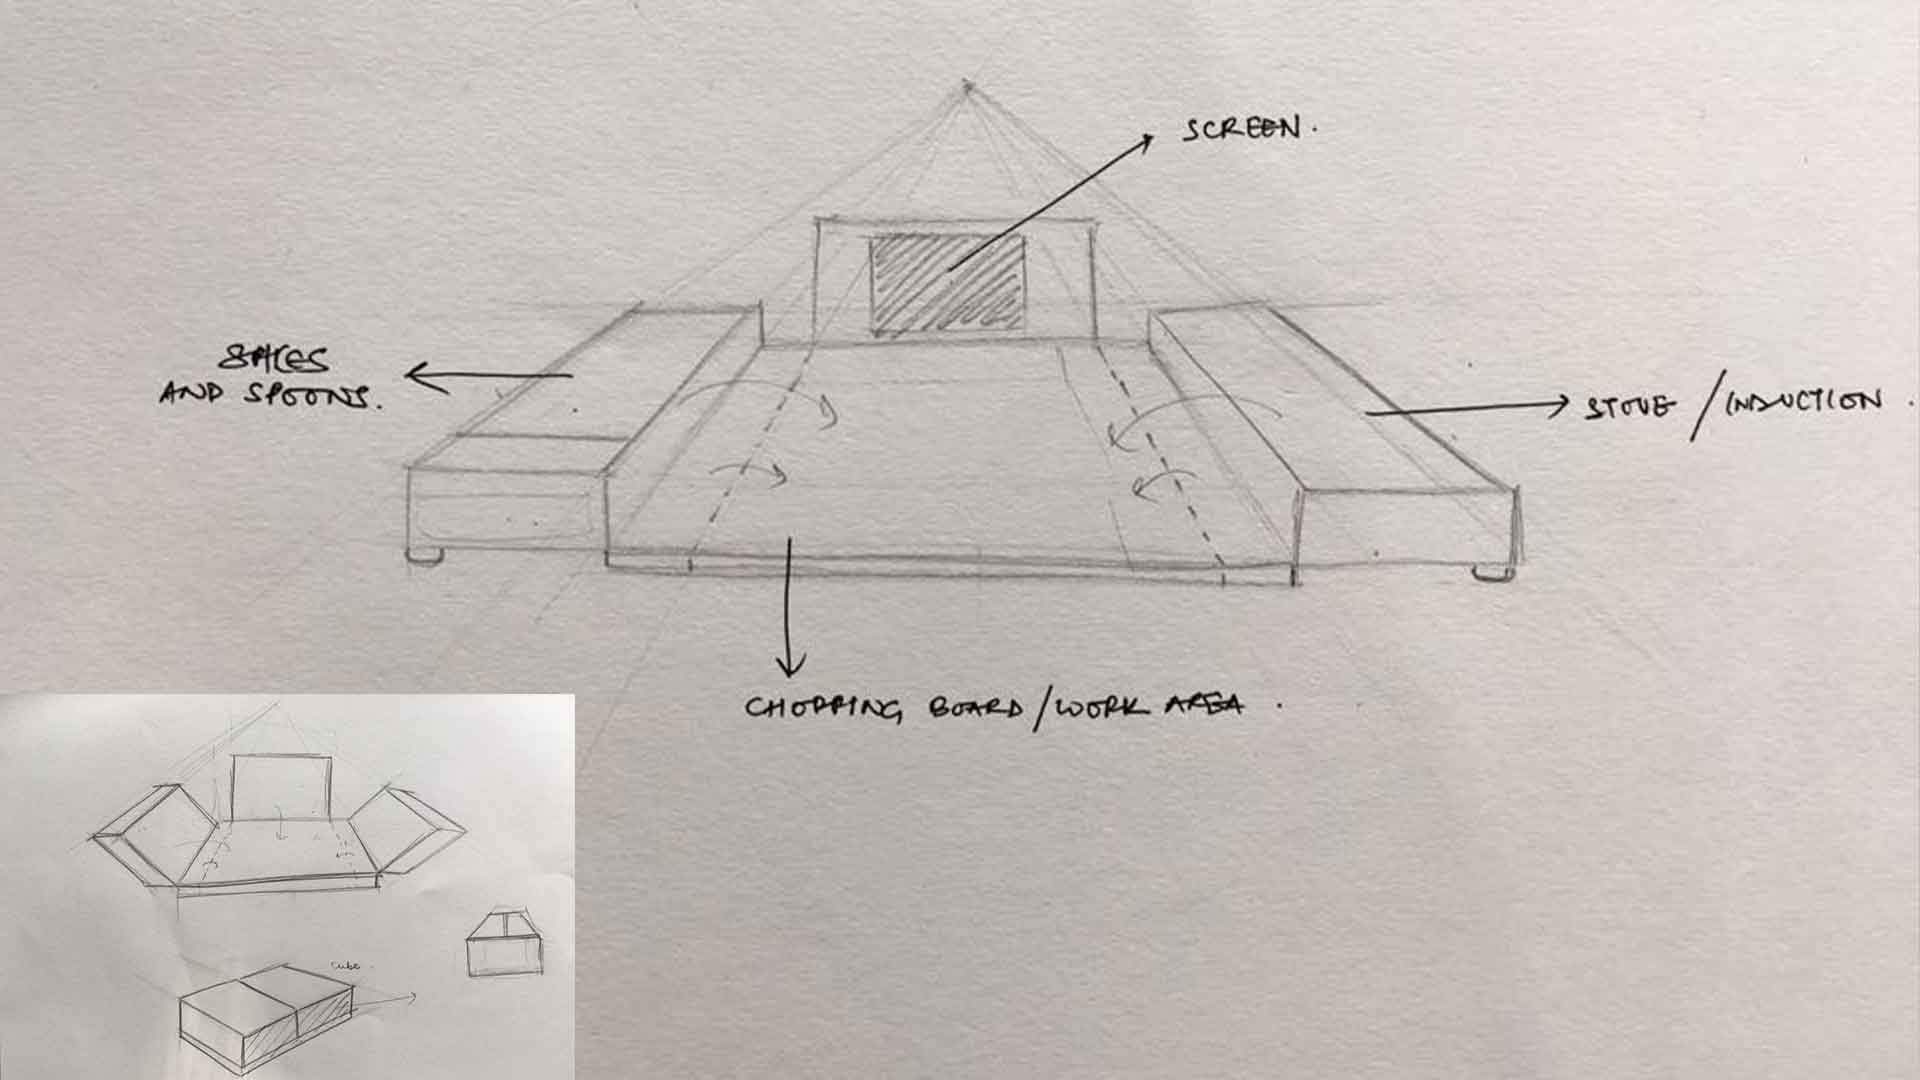 SCREEN.
SPICES
AND SPOONS.
STOVE / INDUCTION.
CHOPPING BOARD/WORK AREA.
cube.